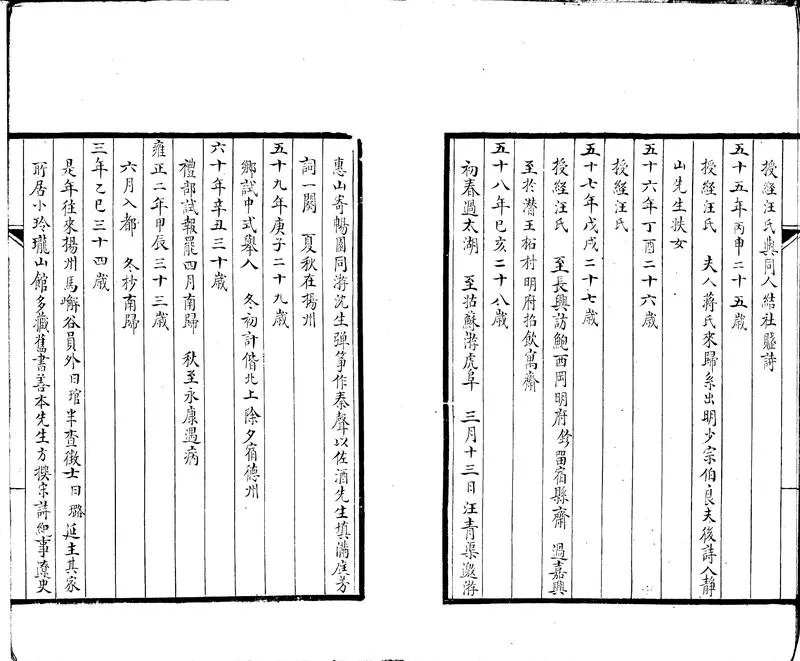 授經汪氏與同人結社賦詩
五十五年丙申二十五歲
授經汪氏　夫人蔣氏來歸系出明少宗伯良夫後詩人靜
山先生姪女
五十六年丁酉二十六歲
授經汪氏
五十七年戊戌二十七歲
授經汪氏　至長興訪鮑西岡明府鉁留宿縣齋　過嘉興
至於潛王柘村明府招飲寓齋
五十八年己亥二十八歲
初春過太湖　至姑蘇游虎阜　三月十三日汪青渠邀游
惠山寄暢園同游沈生彈箏作秦聲以佐酒先生填滿庭芳
詞一闋　夏秋在揚州
五十九年庚子二十九歲
鄉試中式舉人　冬初計偕北上除夕宿德州
六十年辛丑三十歲
禮部試報罷四月南歸　秋至永康遇病
雍正二年甲辰三十三歲
六月入都　冬杪南歸
三年乙巳三十四歲
是年往來揚州馬嶰谷員外曰琯半查徵士曰璐延主其家
所居小玲瓏山館多藏舊書善本先生方撰宋詩紀事遼史